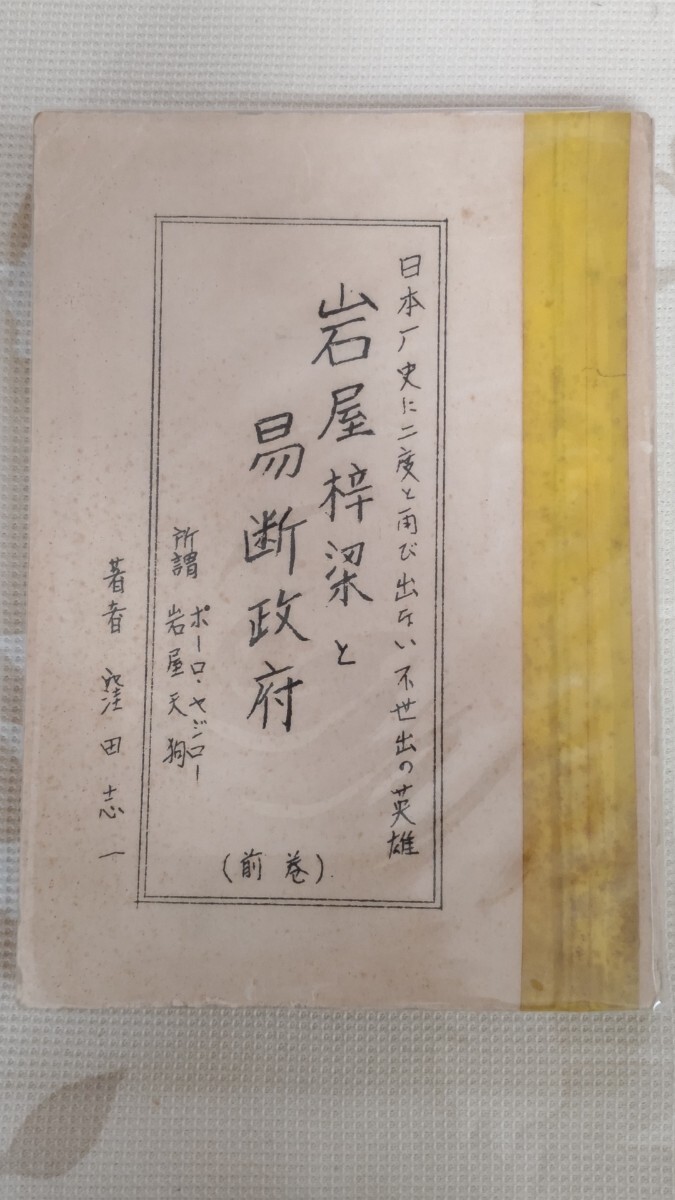 日本厂史に二度と再び出ない不世出の英雄
岩屋梓梁と
易断政府
所謂 ポーロ・ヤジロー
岩屋天狗
(前巻)
著者 窪田志一